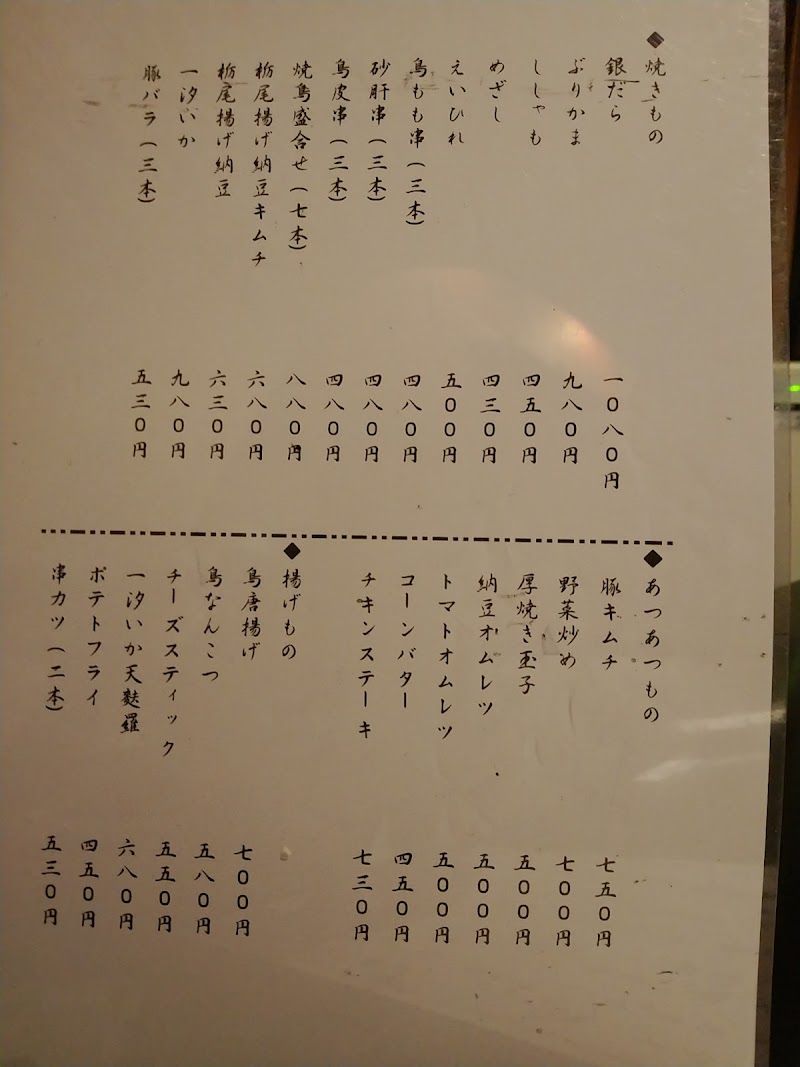 ◆焼きもの
銀だら 一〇八〇円
ぶりかま 九八〇円
ししゃも 四五〇円
めざし 四三〇円
えいひれ 五〇〇円
鳥もも串(三本) 四八〇円
砂肝串(三本) 四八〇円
鳥皮串(三本) 四八〇円
焼鳥盛合せ(七本) 八八〇円
栃尾揚げ納豆キムチ 六八〇円
栃尾揚げ納豆 六三〇円
一汐いか 九八〇円
豚バラ(三本) 五三〇円
◆あつあつもの
豚キムチ 七五〇円
野菜炒め 七〇〇円
厚焼き玉子 五〇〇円
納豆オムレツ 五〇〇円
トマトオムレツ 五〇〇円
コーンバター 四五〇円
チキンステーキ 七三〇円
◆揚げもの
鳥唐揚げ 七〇〇円
鳥なんこつ 五八〇円
チーズスティック 五五〇円
一汐いか天麩羅 六八〇円
ポテトフライ 四五〇円
串カツ(二本) 五三〇円